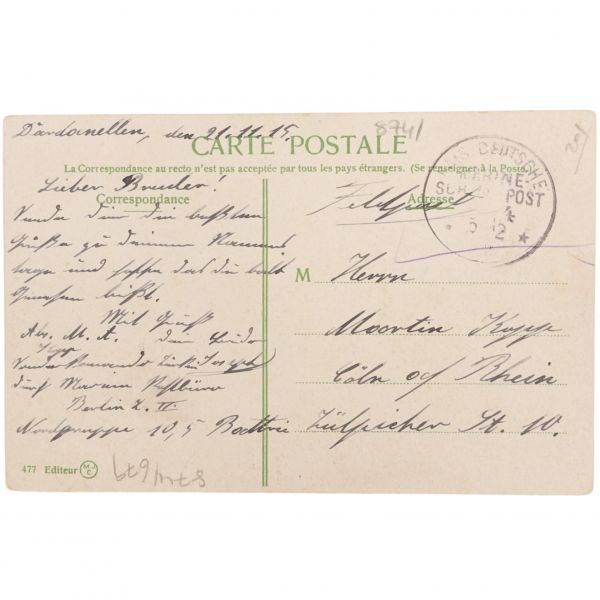 Dardanellen, den 21.11.15.
8741
201
CARTE POSTALE
La Correspondance au recto n'est pas acceptée par tous les pays étrangers. (Se renseigner à la Poste)
Correspondance
Adresse
Feldpost
DEUTSCHE
MARINE-
POST
Lieber Bruder.
Sende dir die besten
Grüße zu deinem Namens
tage und hoffe das du bald
Genesen bist.
Mit Gruß
Abs. M. A. dein Bruder
Kopp
Sonderkommando
durch Marine Postbüro
Berlin
Nordgruppe 10,5 Battrie
M Herrn
Martin Kopp
Cöln a/ Rhein
Zülpicher St. 10.
477 Editeur MJC